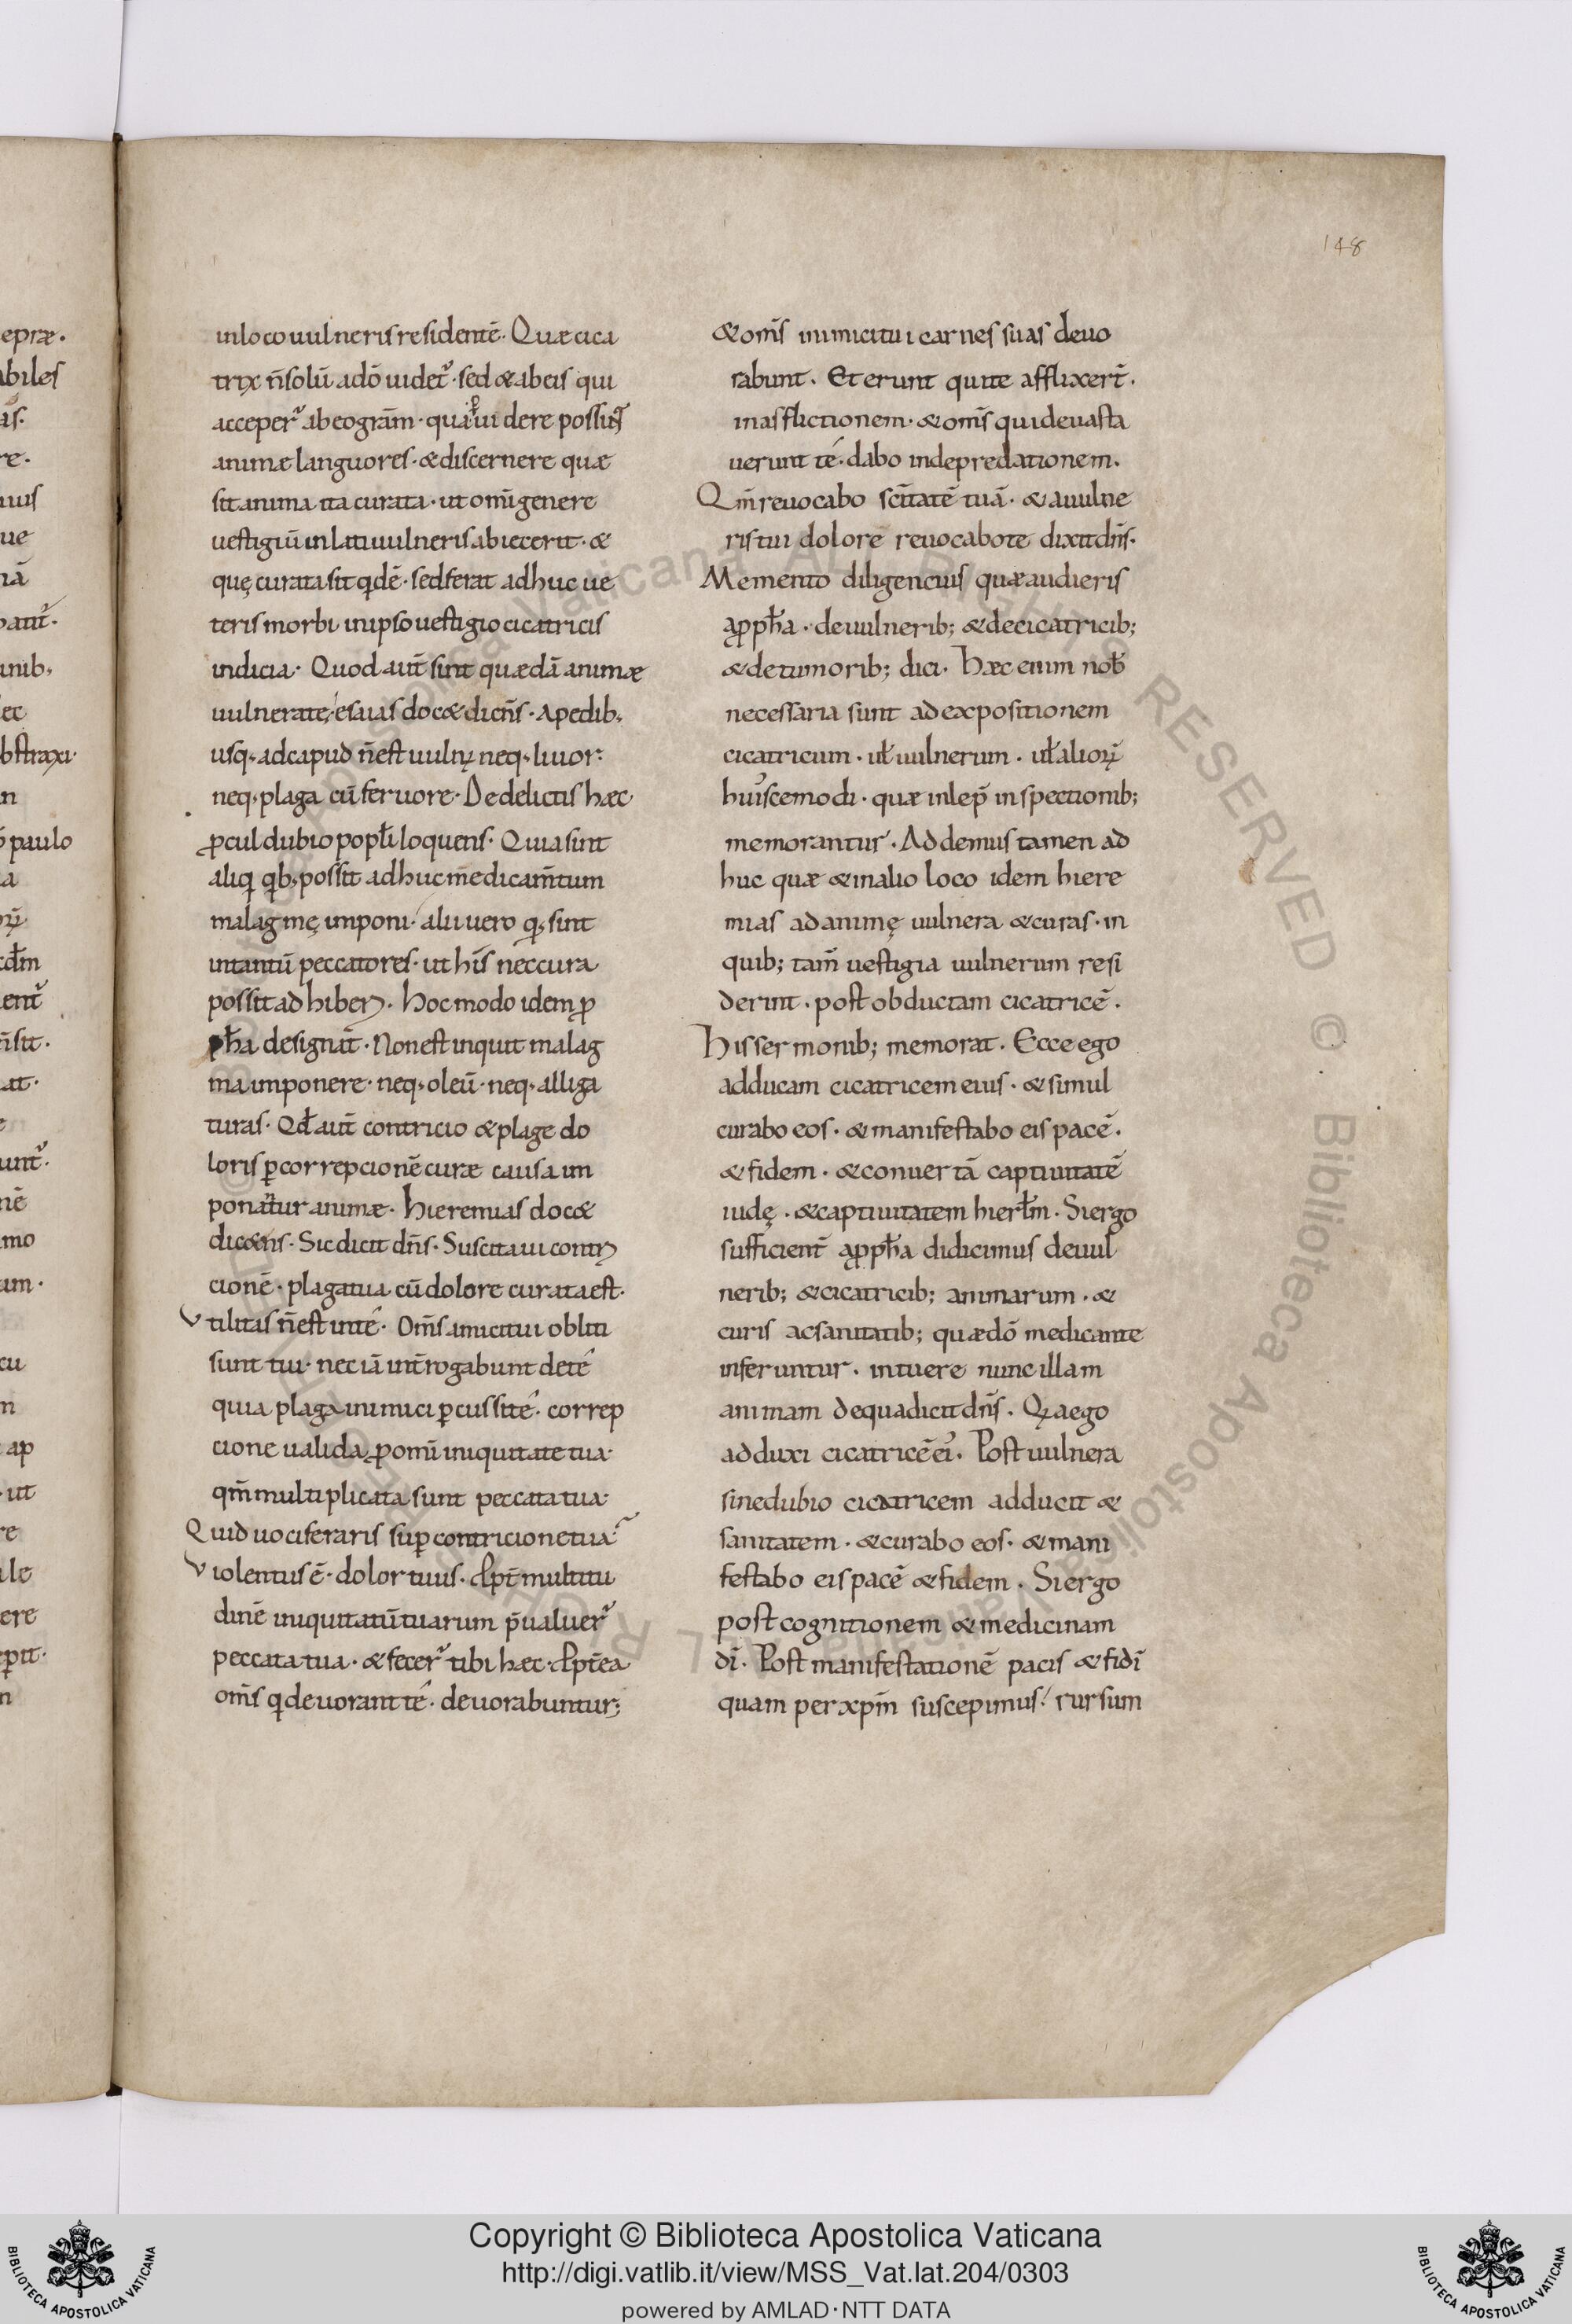 148
in loco uulneris residentē. Quæ cica
trix n̄ solū adō uidet᷑. sed & ab eis qui
acceper᷑ ab eo grām. qua uidere possun᷑
animæ languores. & discernere quæ
sit anima ita curata. ut om̄i genere
uestigiū inlati uulneris abiecerit. &
quę curata sit qdē. sed ferat adhuc ue
teris morbi in ipso uestigio cicatricis
indicia. Quod aut̄ sint quædā animæ
uulnerate, esaias doc& dicn̄s. A pedib;
usq; ad capud n̄ est uuln; neq; liuor.
neq; plaga cū feruore. De delictis hæc
ꝓcul dubio popłi loquens. Quia sint
aliq qb; possit adhuc medicam̄tum
malagmę imponi. alii uero q; sint
in tantū peccatores. ut his̄ nec cura
possit adhiberi. Hoc modo idem ꝓ
ph̄a designat̄. Non est inquit malag
ma imponere. neq; oleū. neq; alliga
turas. Qđ aut̄ contricio & plage do
loris ꝑ correpcionē curæ causa im
ponatur animæ. Hieremias doc&
dicens. Sic dicit dn̄s. Suscitaui contri
cionē. plaga tua cū dolore curata est.
Vtilitas n̄ est in té. Om̄s amici tui obliti
sunt tui. nec iā int̄rogabunt de té
quia plaga inimici ꝑcussi té. correp
cione ualida, ꝓ om̄i iniquitate tua.
qm̄ multiplicata sunt peccata tua.
Quid uociferaris suꝑ contricione tua
Violentus ē. dolor tuus. ꝓpt̄ multitu
dinē iniquitatū tuarum p̄ualuer᷑
peccata tua. & fecer᷑ tibi hæc. ꝓpt̄ea
om̄s q deuorant té. deuorabuntur;
& om̄s inimici tui carnes suas deuo
rabunt. Et erunt qui te afflixer̄.
in asflictionem. & om̄s qui deuasta
uerunt té. dabo in depredationem.
Qm̄ reuocabo sc̄itatē tuā. & a uulne
ris tui dolore reuocabo te dixit dn̄s.
Memento diligencius quæ audieris
a ꝓph̄a. de uulnerib; & de cicatricib;
& de tumorib; dici. Hæc enim nob̄
necessaria sunt ad expositionem
cicatricum. uł uulnerum. uł alioꝝ
huiscemodi. quæ in lep̄ inspectionib;
memorantur. Addemus tamen ad
huc quæ & in alio loco idem hiere
mias ad animę uulnera & curas. in
quib; tam̄ uestigia uulnerum resi
derint. post obductam cicatricē.
His sermonib; memorat. Ecce ego
adducam cicatricem eius. & simul
curabo eos. & manifestabo eis pacē.
& fidem. & conuertā captiuitatē
iudę. & captiuitatem hierłm. Si ergo
sufficient̄ a ꝓph̄a didicimus de uul
nerib; & cicatricib; animarum. &
curis ac sanitatib; quæ dō medicante
inferuntur. intuere nunc illam
animam de qua dicit dn̄s. Qꝛa ego
adduxi cicatricē ei᾽. Post uulnera
sine dubio cicatricem adducit &
sanitatem. & curabo eos. & mani
festabo eis pacē & fidem. Si ergo
post cognitionem & medicinam
dī. Post manifestationē pacis & fidī
quam per xp̄m suscepimus. rursum
Copyright © Biblioteca Apostolica Vaticana
http://digi.vatlib.it/view/MSS_Vat.lat.204/0303
powered by AMLAD·NTT DATA